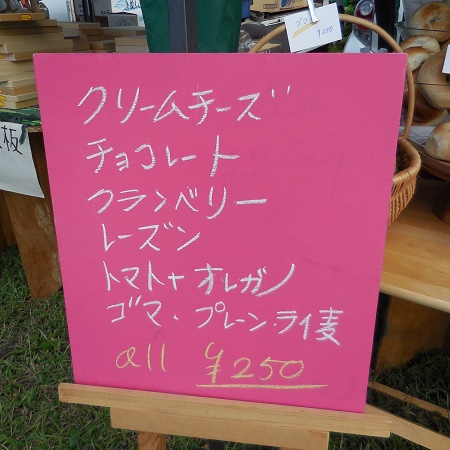 クリームチーズ
チョコレート
クランベリー
レーズン
トマト+オレガノ
ゴマ・プレーン・ライ麦
all ¥250
ゴマ
¥250
板